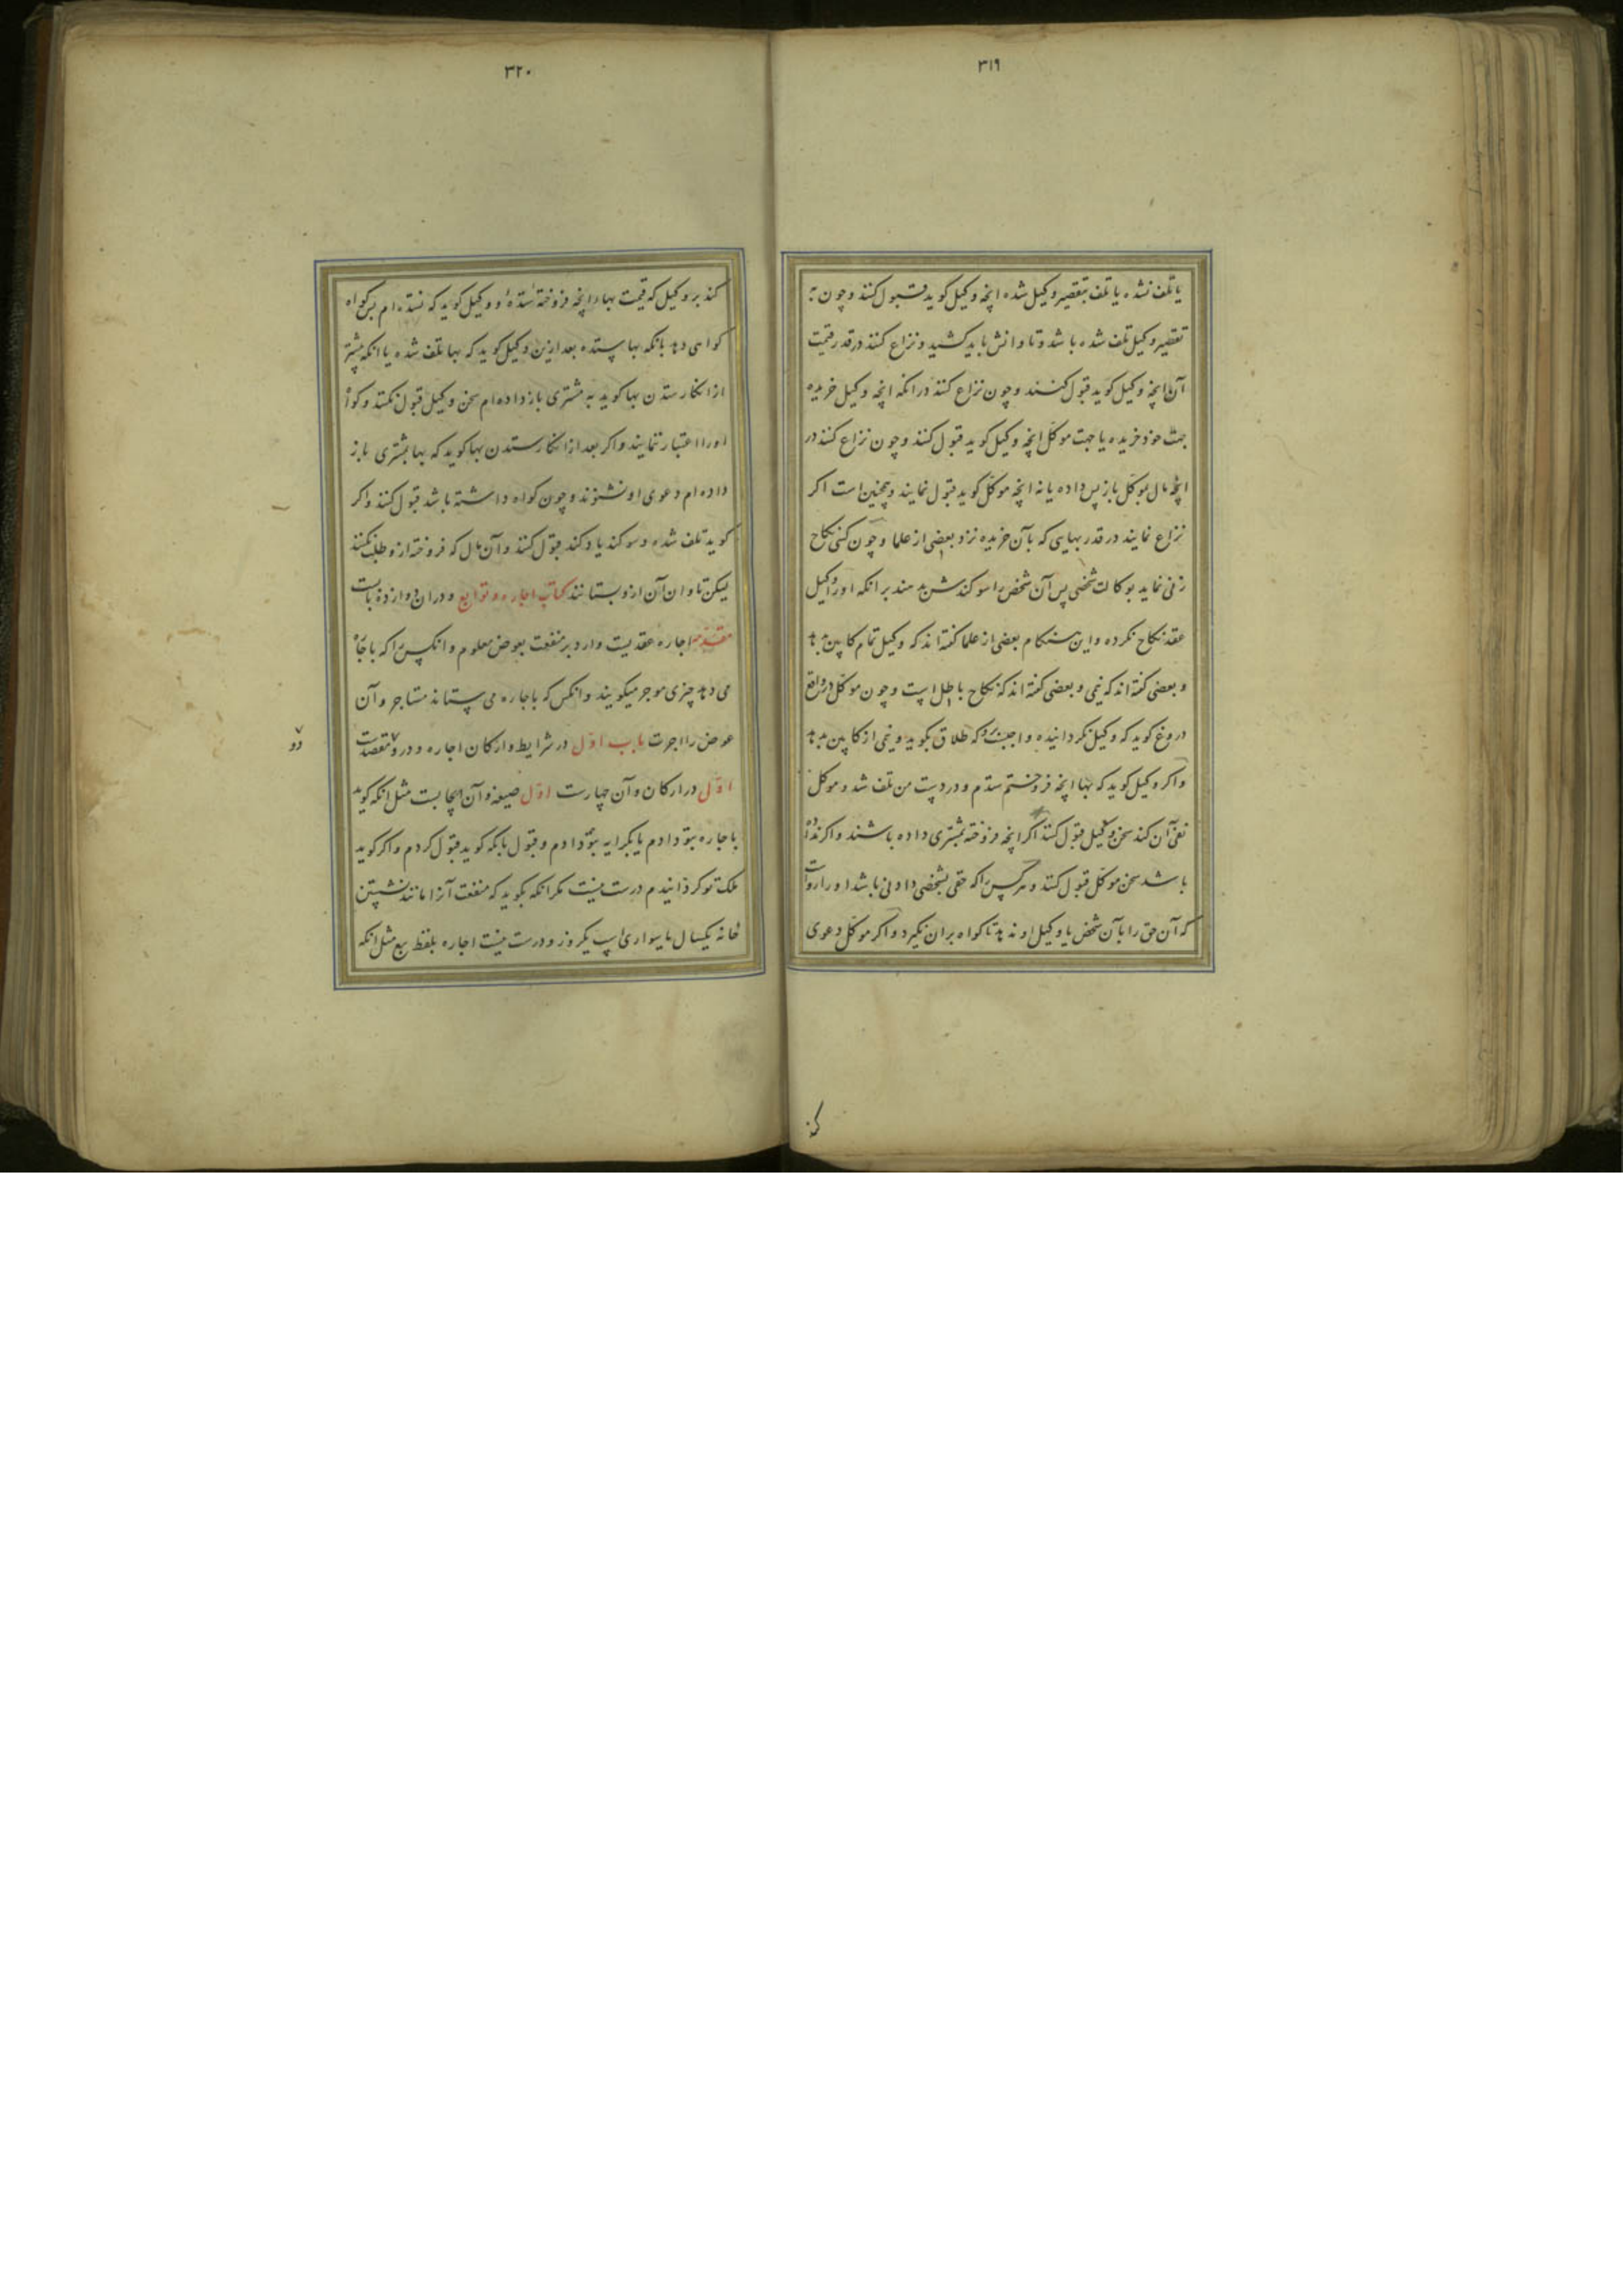 ۳۱۹
یا تلف نشده یا تلف بتقصیر وکیل شده انچه وکیل کوید قبول کنند و چون به
تقصیر وکیل تلف شده باشد و تاوانش باید کشید و نزاع کنند در قدر قیمت
آن انچه وکیل کوید قبول کنند و چون نزاع کنند در انکه انچه وکیل خریده
جهت خود خریده یا جهت موکل انچه وکیل کوید قبول کنند و چون نزاع کنند در
انکه مال بموکل باز پس داده یا نه انچه موکل کوید قبول نمایند و همچنین است اکر
نزاع نمایند در قدر بهایی که بآن خریده نزد بعضی از علما و چون کسی نکاح
زنی نماید بوکالت شخصی پس آن شخص را سوکند شرع دهند بر انکه او را وکیل
عقد نکاح نکرده و این هنکام بعضی از علما کفته اند که وکیل تمام کابین بدهد
و بعضی کفته اند که نیمی و بعضی کفته اند که نکاح باطل است و چون موکل در واقع
دروغ کوید که وکیل نکردانیده واجبست برو که طلاق بکوید و نیمی از کابین بدهد
و اکر وکیل کوید که بها انچه فروختم ستدم و در دست من تلف شد و موکل
نفی آن کند سخن وکیل قبول کنند اکر انچه فروخته بمشتری داده باشند و اکر نداده
باشد سخن موکل قبول کنند و هر کس را که حقی بشخصی دادنی باشد او را رواست
که آن حق را بآن شخص یا وکیل او ندهد تا کواه بران نکیرد و اکر موکل دعوی
کند
۳۲۰
کند بر وکیل که قیمت بهاء انچه فروخته ستده و وکیل کوید که نستده ام پس کواه
کواهی دهد بانکه بها ستده بعد ازین وکیل کوید که بها تلف شده یا انکه پیشتر
از انکار ستدن بها کوید به مشتری باز داده ام سخن وکیل قبول نکنند و کواه
او را اعتبار ننمایند و اکر بعد از انکار ستدن بها کوید که بها بمشتری باز
داده ام دعوی او نشنوند و چون کواه داشته باشد قبول کنند و اکر
کوید تلف شده و سوکند یاد کند قبول کنند و آن مال که فروخته ازو طلب نکنند
لیکن تاوان آن ازو بستانند کتاب اجاره و توابع و در ان دوازده بابست
مقدمه اجاره عقدیست وارد بر منفعت بعوض معلوم و انکس را که باجاره
می دهد چیزی موجر میکویند و انکس که باجاره می ستاند مستاجر و آن
عوض را اجرت باب اول در شرایط و ارکان اجاره و درو مقصدست
دو
اول در ارکان و آن چهارست اول صیغه و آن ایجابست مثل انکه کوید
باجاره بتو دادم یا بکرایه بتو دادم و قبول بانکه کوید قبول کردم و اکر کوید
ملک تو کردانیدم درست نیست مکر انکه بکوید که منفعت آنرا مانند نشستن
خانه یکسال یا سواری اسپ یکروز و درست نیست اجاره بلفظ بیع مثل انکه